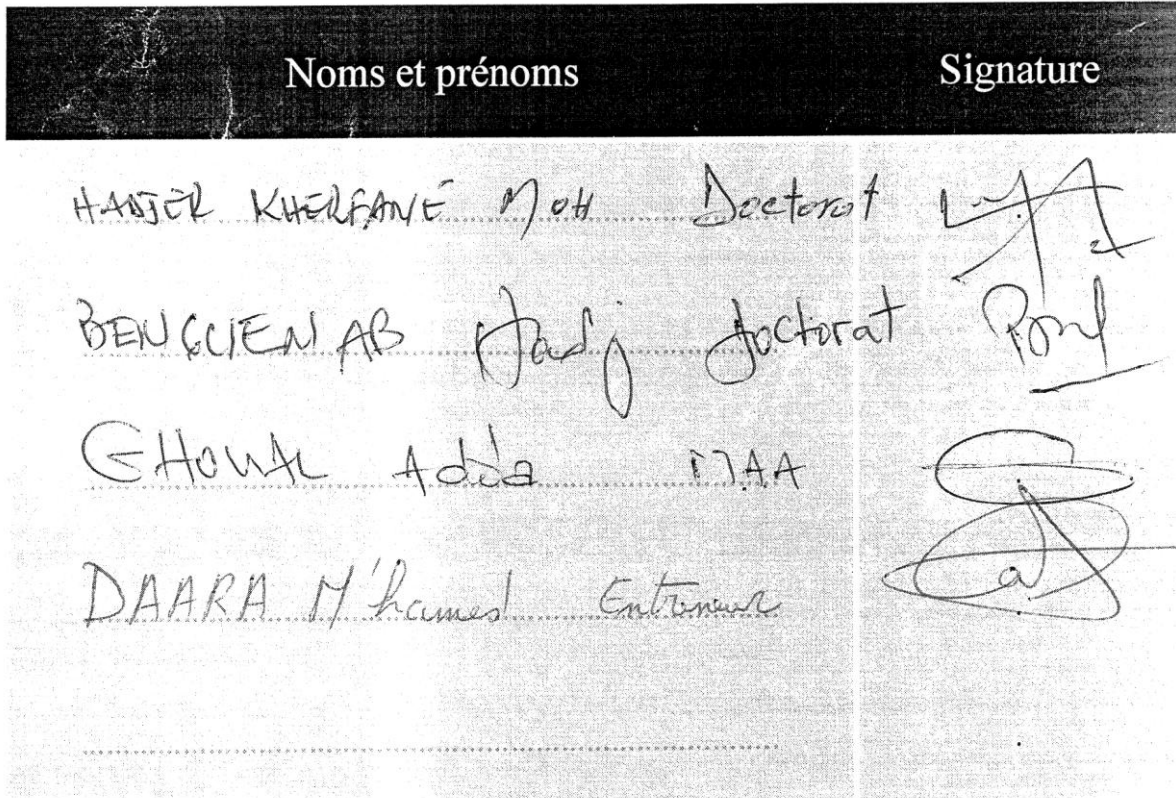 Noms et prénoms Signature
HANJER KHERFANE MOH Doctorat
BENGUENAB Hadj doctorat
GHOUAL Adda MAA
DAARA M'hamed Entreneur